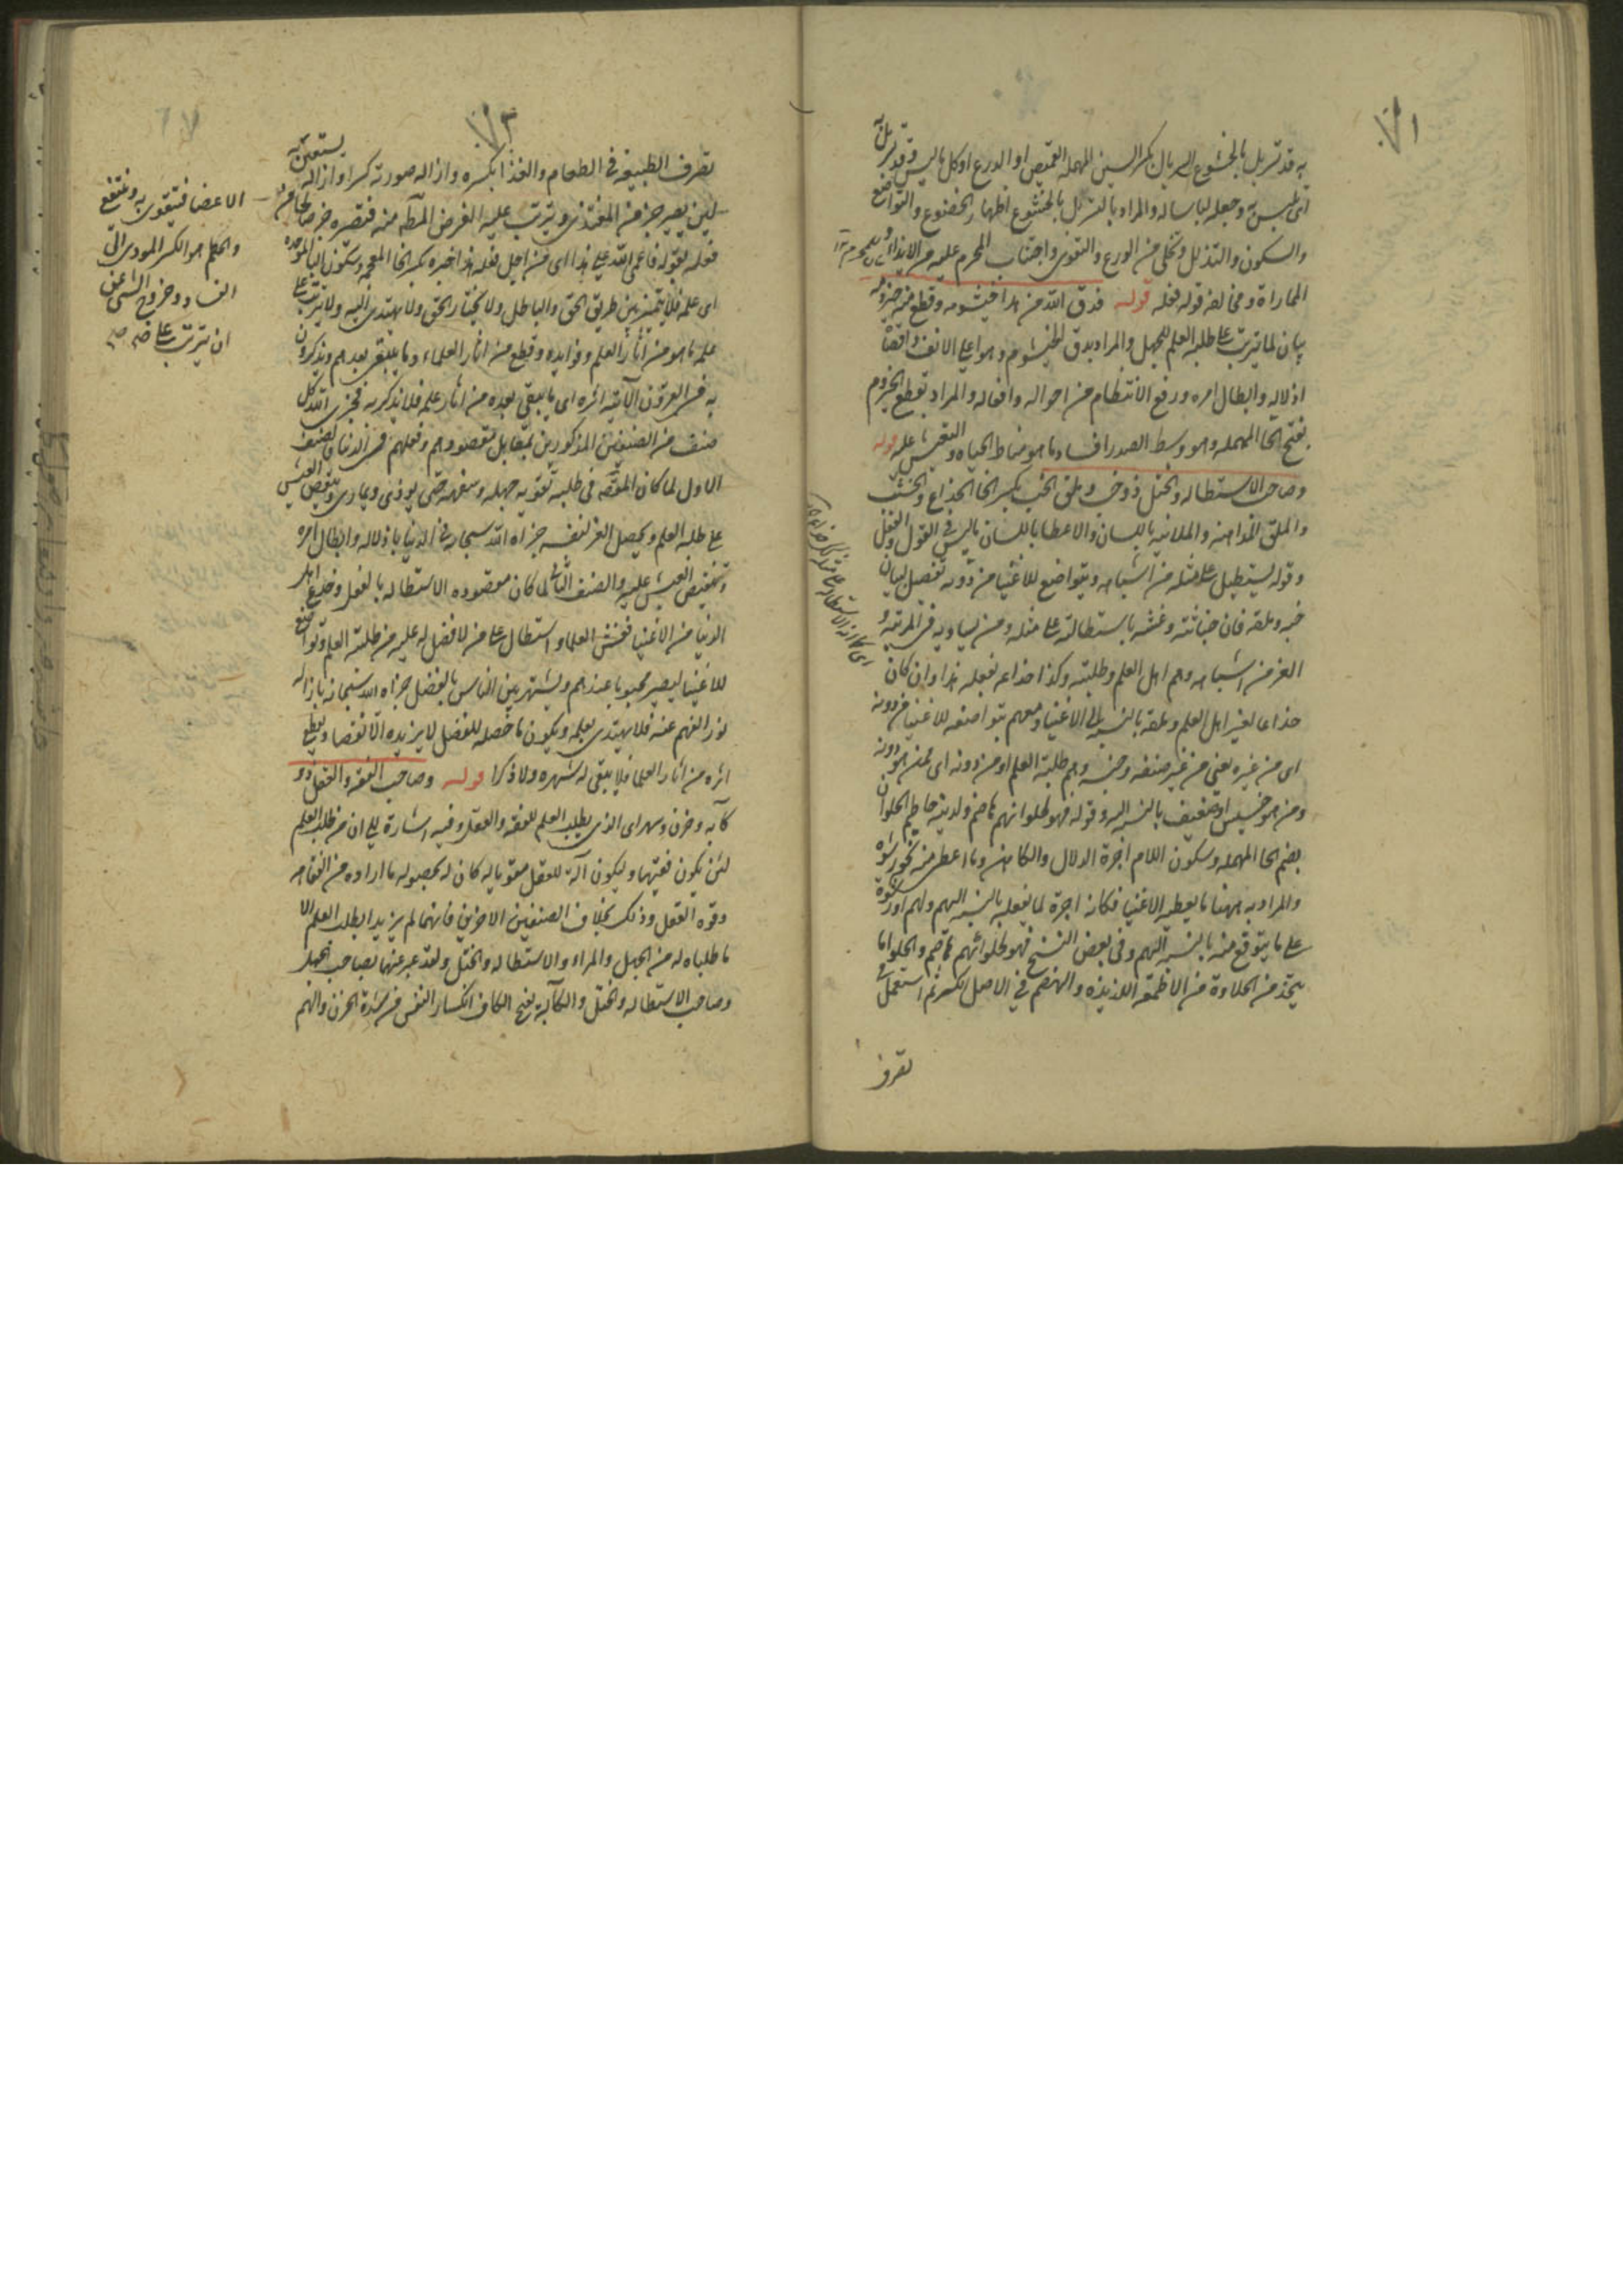 ٧١
به قد تسربل بالخشوع السربال بكسر السين المهملة القميص او الدرع او كل ما لبس وقد تسربل به
اى تلبس به وجعله لباسا له والمراد بالتسربل بالخشوع اظهار الخضوع والتواضع
والسكون والتذلل وتخلى من الورع والتقوى واجتناب المحرم عليه من الايذاء
المماراة ومخالفة قوله فعله قوله فدق الله من هذا خيشومه وقطع منه حيزومه
بيان لما يترتب على طلبه العلم للجهل والمراد بدق الخيشوم وهو اعلى الانف واقصاه
اذلاله وابطال امره ورفع الانتظام من احواله وافعاله والمراد بقطع الحيزوم
بفتح الحا المهملة وهو وسط الصدر افساد ما هو مناط الحياة والتعيش عليه قوله
وصاحب الاستطالة والختل ذو خب وملق الخب بكسر الخا الخداع والخبث
والملق المداهنة والملاينة باللسان والاعطا باللسان ما ليس فى القول والفعل
وقوله يستطيل على مثله من اشباهه ويتواضع للاغنيا من دونه تفصيل لبيان
خبه وملقه فان خباثته وغشه باستطالته على مثله ومن يساويه فى المرتبة و
العز من اشباهه وهم اهل العلم وطلبته وكذا خداعه بفعله هذا وان كان
خداعا لغير اهل العلم وملقه بالنسبة الى الاغنيا ومعهم بتواضعه للاغنيا من دونه
اى من غيره يعنى من غير صنفه وجنسه وهم طلبة العلم او من دونه اى ممن هو دونه
ومن هو خسيس او ضعيف بالنسبة اليه وقوله فهو لحلوانهم هاضم ولدينه حاطم الحلوان
بضم الحا المهملة وسكون اللام اجرة الدلال والكاهن وما اعطى من نحو رشوة
والمراد به ههنا ما يعطيه الاغنيا فكانه اجرة لما يفعله بالنسبة اليهم ولهم او رشوة
على ما يتوقع منه بالنسبة اليهم وفى بعض النسخ فهو لحلوائهم هاضم والحلوا ما
يتخذ من الحلاوة من الاطعمة اللذيذة والهضم فى الاصل الكسر ثم استعمل فى
تصرف
٧٣
تصرف الطبيعة فى الطعام والغذا بكسره وازالة صورته كسرا وازالة يستعين به
لين يصير جز من المغتذى ويترتب عليه الغرض المط منه
فعله بقوله فاعمى الله على هذا اى من اجل فعله هذا خبره بكسر الخا المعجمة وسكون البا الموحدة
اى علمه فلا يتميز بين طريق الحق والباطل ولا يختار الحق ولا يهتدى اليه ولا يترتب على
علمه ما هو من اثار العلم وفوايده وقطع من اثار العلماء وما يبقى بعدهم ويذكرون
به فى القرون الآتية اثره اى ما يبقى بعده من اثار علمه فلا يذكر به فجزى الله كل
صنف من الصنفين المذكورين بمقابل مقصودهم وفعلهم فى الدنيا فالصنف
الاول لما كان المقصد فى طلبه تقوية جهله وسفهه حتى يوذى ويمارى وتنغيص العيش
على طلبة العلم وتحصيل العز لنفسه جزاه الله سبحانه فى الدنيا باذلاله وابطال امره
وتنغيص العيش عليه والصنف الثانى لما كان مقصوده الاستطالة بالفعل وخداع اهل
الدنيا من الاغنيا فغش العلما واستطال على من لا فضل له عليه من طلبة العلم وتواضع
للاغنيا ليصير محبوبا عندهم ويشتهر بين الناس بالفضل جزاه الله سبحانه بازالة
نور الفهم عنه فلا يهتدى بعلمه ويكون ما حصله للفضل لا يزيده الا نقصا ويقطع
اثره من اثار العلما فلا يبقى له شهرة ولا ذكرا قوله وصاحب الفقه والعقل ذو
كآبة وحزن وسهر اى الذى يطلب العلم للفقه والعقل وفيه اشارة الى ان من طلب العلم
لئن يكون فقيها وليكون آلة للعقل مقوياله كان له بحصوله ما اراده من الفقاهة
وقوة العقل وذلك بخلاف الصنفين الاخرين فانهما لم يزيدا بطلب العلم الا
ما طلباه له من الجهل والمراء والاستطالة والختل ولقد عبر عنهما بصاحب الجهل
وصاحب الاستطالة والختل والكآبة بفتح الكاف انكسار النفس من شدة الحزن والهم
الاعضا فتقوى به وتنتفع
والحطم هو الكسر المودى الى
الفساد وخروج الشى عن
ان يترتب عليه